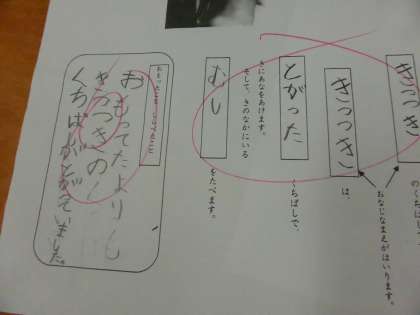 きつつき
のくちばし
おなじなまえがはいります。
きつつき
は、
とがった
くちばしで、
きにあなをあけます。
そして、きのなかにいる
むし
をたべます。
おもってたよりも
きつつきのく
くちばしがとがっていました。